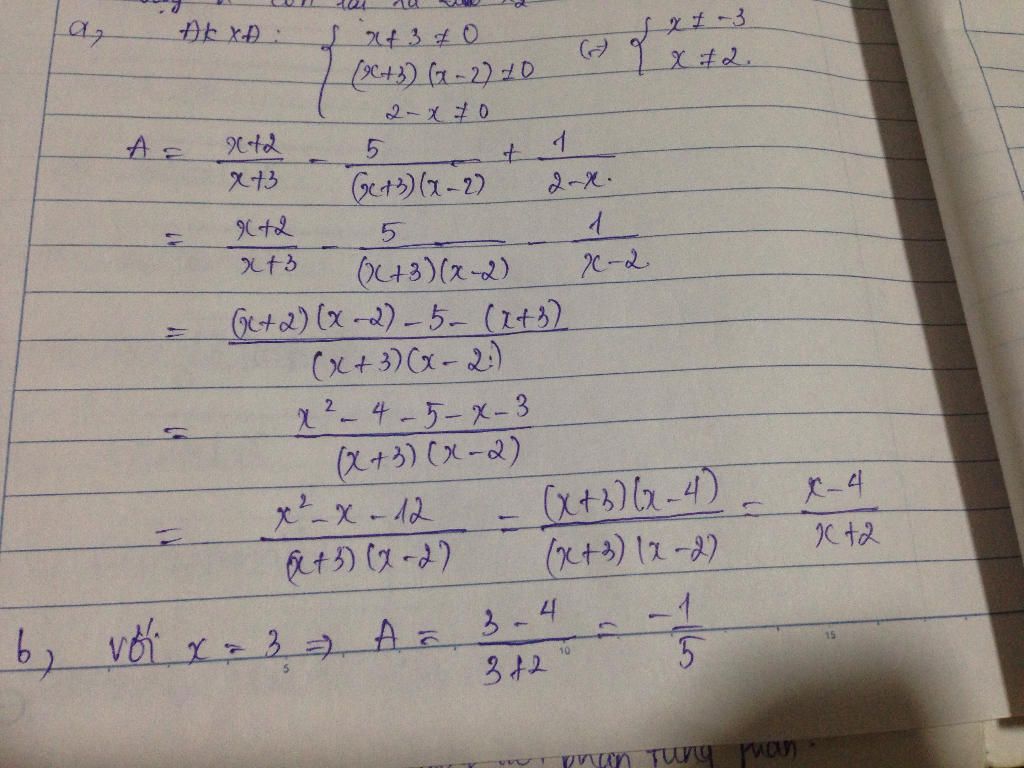 a, ĐKXĐ: { x+3 ≠ 0 (=) { x ≠ -3
(x+3)(x-2) ≠ 0 x ≠ 2.
2-x ≠ 0
A = (x+2)/(x+3) - 5/((x+3)(x-2)) + 1/(2-x).
= (x+2)/(x+3) - 5/((x+3)(x-2)) - 1/(x-2)
= ((x+2)(x-2) - 5 - (x+3))/((x+3)(x-2))
= (x² - 4 - 5 - x - 3)/((x+3)(x-2))
= (x² - x - 12)/((x+3)(x-2)) = ((x+3)(x-4))/((x+3)(x-2)) = (x-4)/(x+2)
b, với x = 3 => A = (3-4)/(3+2) = -1/5
5 10 15